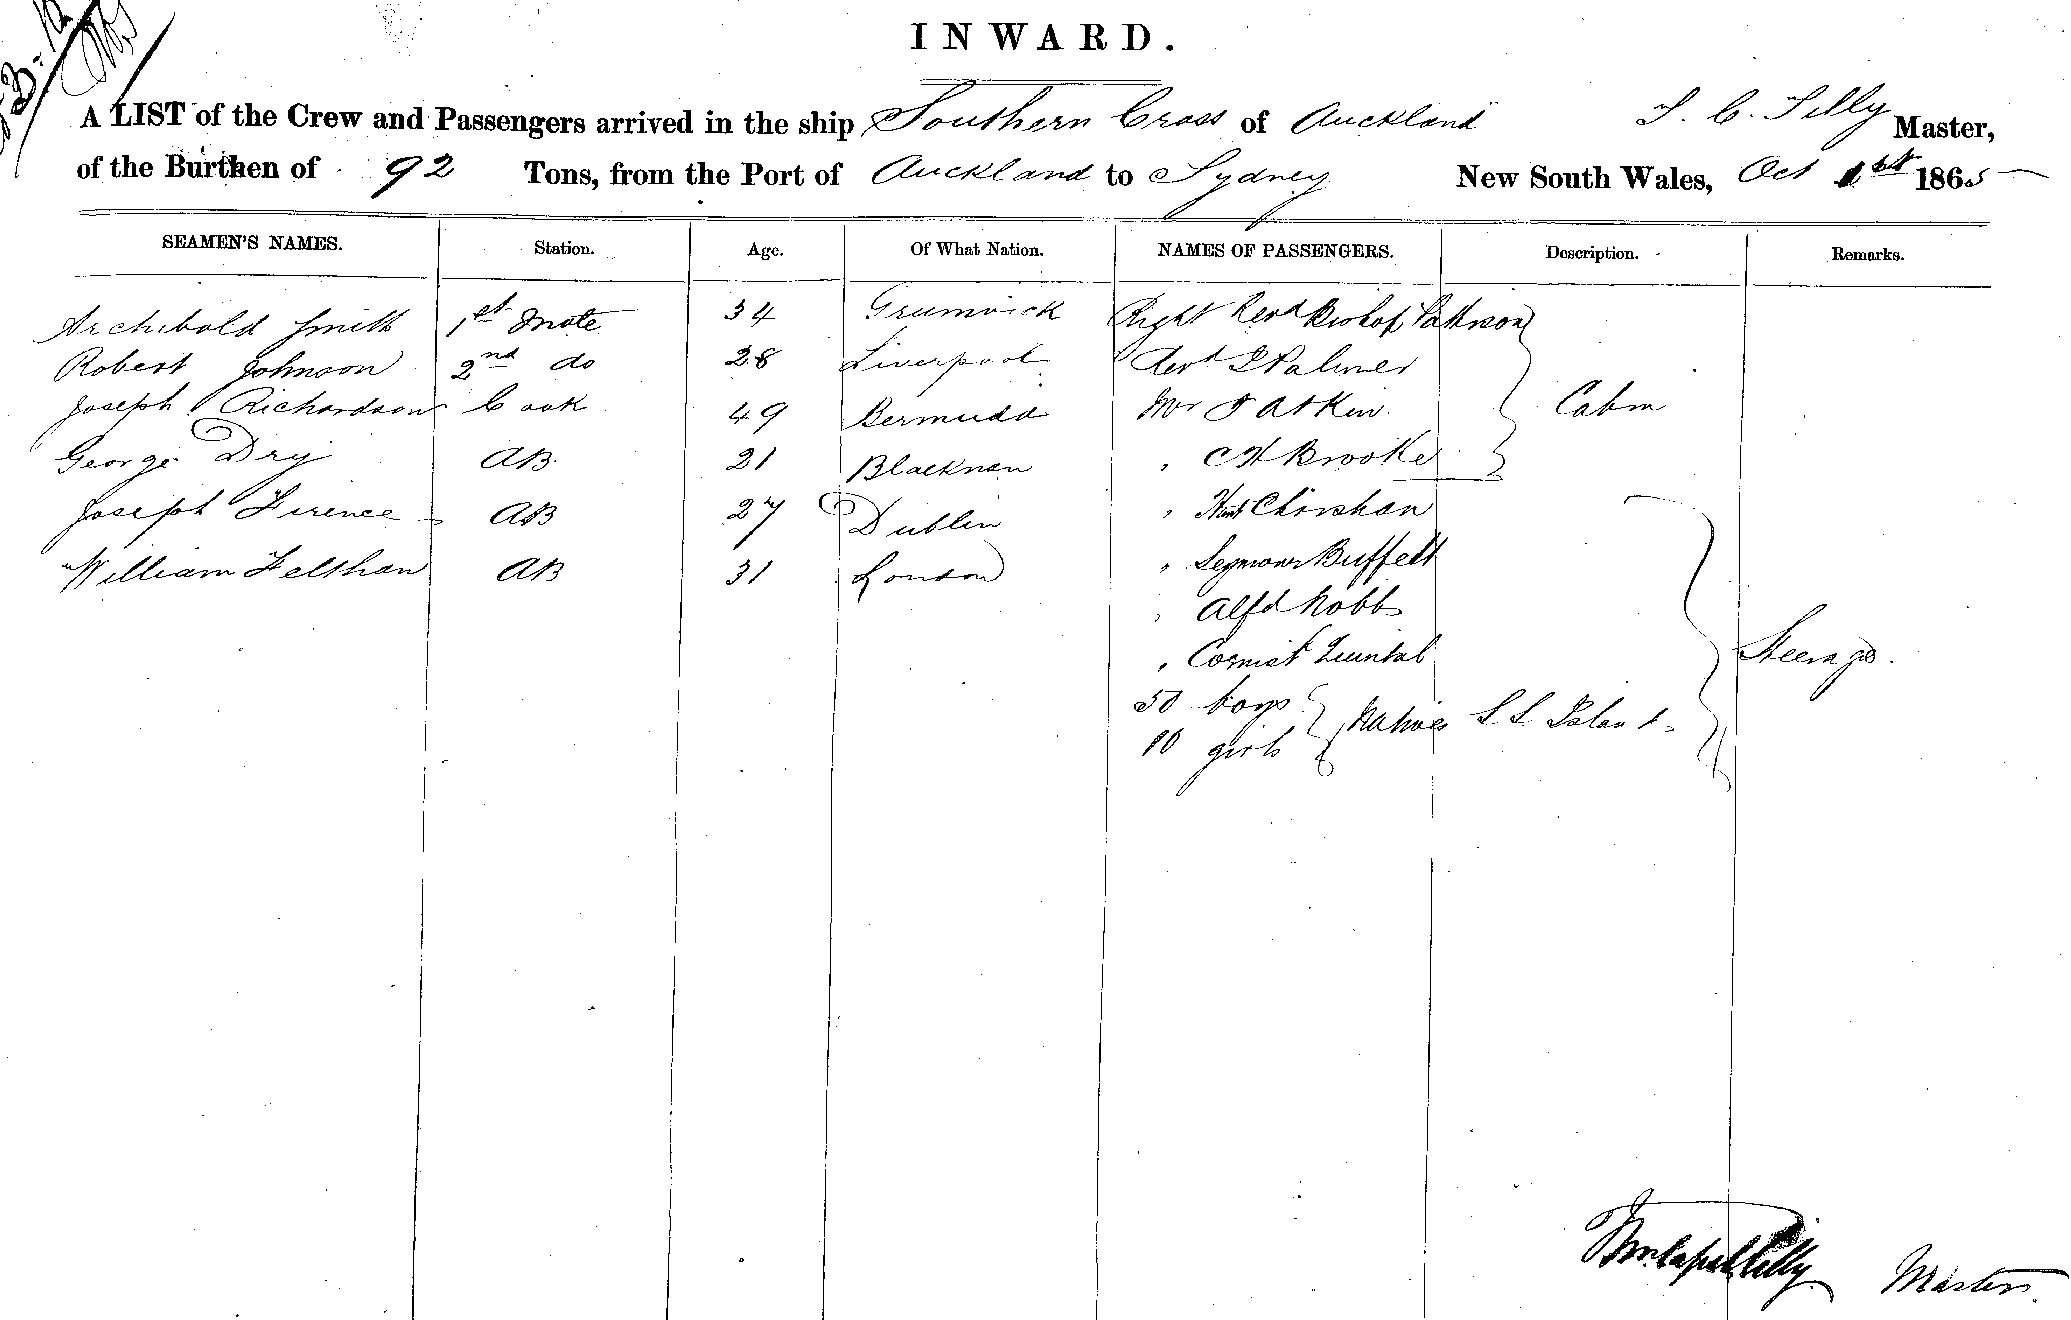 INWARD.
A LIST of the Crew and Passengers arrived in the ship Southern Cross of Auckland T. C. Tilly Master,
of the Burthen of 92 Tons, from the Port of Auckland to Sydney New South Wales, Oct 1st 1865
SEAMEN'S NAMES. Station. Age. Of What Nation. NAMES OF PASSENGERS. Description. Remarks.
Archibold Smith 1st Mate 34 Right Revd Bishop Patteson
Robert Johnson 2nd do 28 Liverpool Revd J Palmer
Joseph Richardson Cook 49 Bermuda Mr J Atkin Cabin
George Dry AB 21 " C H Brooke
Joseph AB 27 Dublin " Christian
William Feltham AB 31 London " Seymour Buffett
" Alfd Nobbs
" Quintal Steerage
50 boys
10 girls Natives S S Islands
Tilly Master